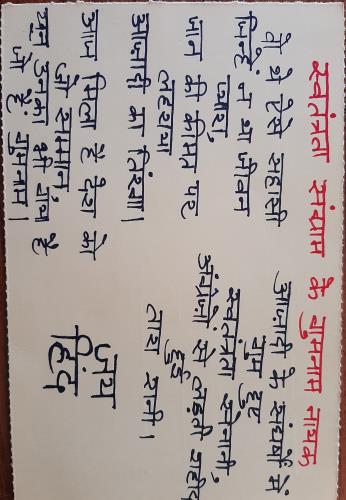 स्वतंत्रता संग्राम के गुमनाम नायक
वो थे ऐसे साहसी
जिन्हें न था जीवन
प्यारा,
जान की कीमत पर
लहराया
आजादी का तिरंगा।
आज मिला है देश को
जो सम्मान,
उनका भी साथ है
जो हैं गुमनाम।
आजादी के संघर्षो में
गुम हुए
स्वतंत्रता सेनानी,
अंग्रेजों से लड़ती शहीद
हुई
तारा रानी।
जय
हिंद